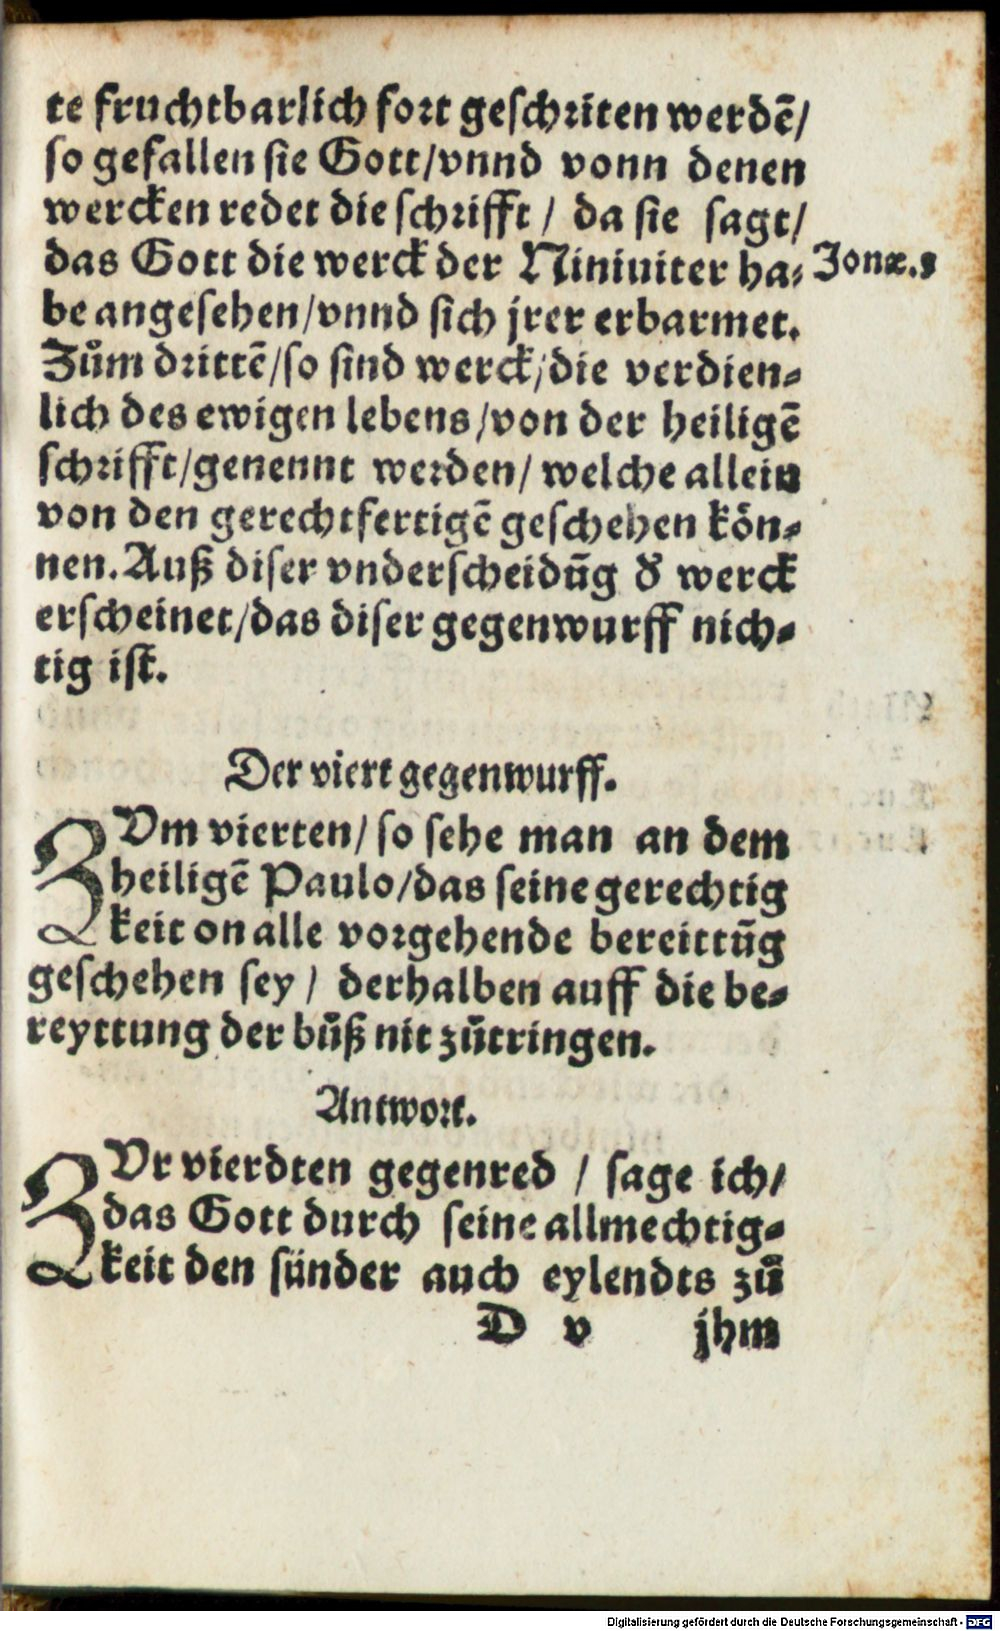 te fruchtbarlich fort geschriten werdē/
so gefallen sie Gott/vnnd vonn denen
wercken redet die schrifft / da sie sagt/
das Gott die werck der Niniuiter ha⸗
Jonæ.3
be angesehen/vnnd sich jrer erbarmet.
Zům drittē/so sind werck/die verdien⸗
lich des ewigen lebens/von der heiligē
schrifft/genennt werden/ welche allein
von den gerechtfertigē geschehen kön⸗
nen. Auß diser vnderscheidūg d' werck
erscheinet/das diser gegenwurff nich⸗
tig ist.
Der viert gegenwurff.
ZVm vierten/ so sehe man an dem
heiligē Paulo/das seine gerechtig
keit on alle vorgehende bereittūg
geschehen sey / derhalben auff die be⸗
reyttung der bůß nit zůtringen.
Antwort.
ZVr vierdten gegenred / sage ich/
das Gott durch seine allmechtig⸗
keit den sünder auch eylendts zů
D v jhm
Digitalisierung gefördert durch die Deutsche Forschungsgemeinschaft - DFG